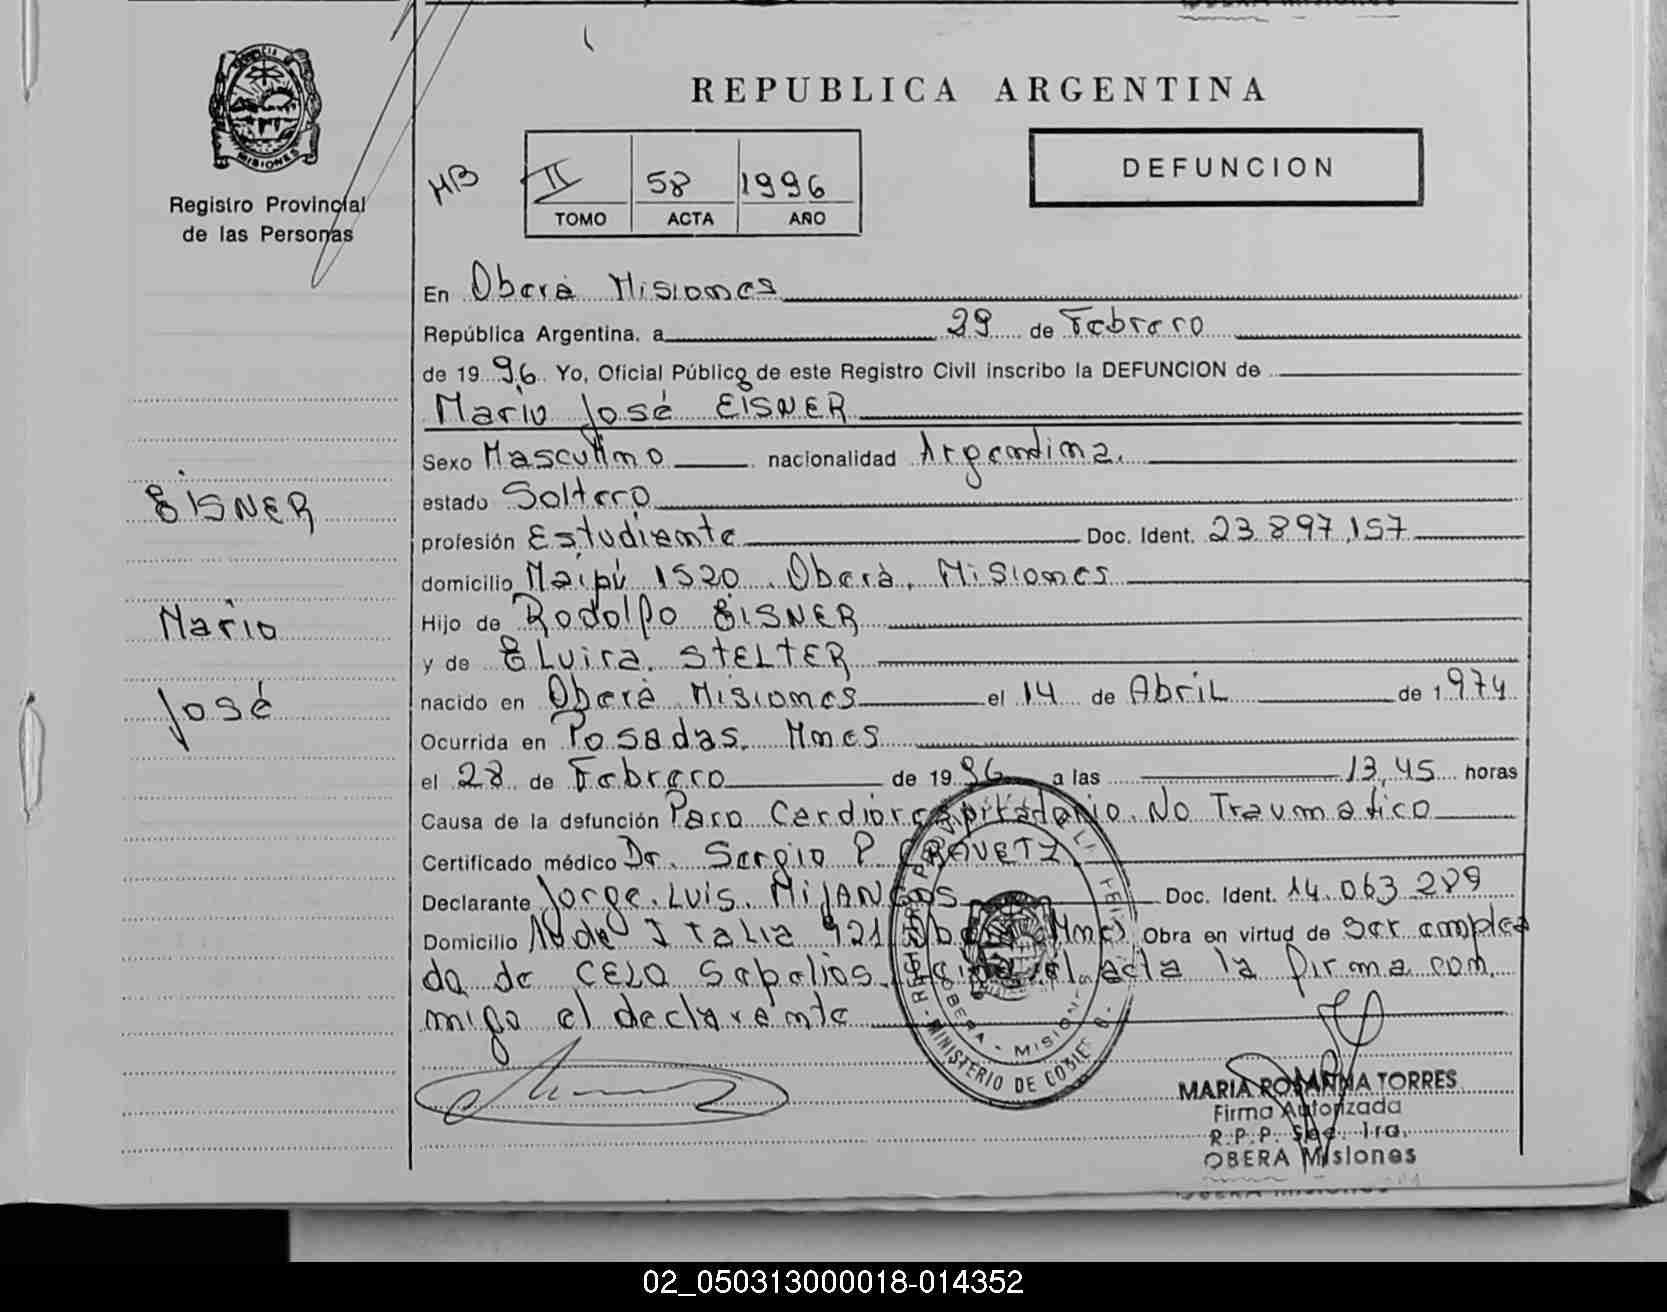 REPUBLICA ARGENTINA
MISIONES
Registro Provincial
de las Personas
HB
II 58 1996
TOMO ACTA AÑO
DEFUNCION
En Oberá Misiones
República Argentina, a 29 de Febrero
de 1996 Yo, Oficial Público de este Registro Civil inscribo la DEFUNCION de
Mario José EISNER
Sexo Masculino nacionalidad Argentina.
estado Soltero
EISNER
profesión Estudiante Doc. Ident. 23.897.157
domicilio Maipú 1520. Oberá, Misiones
Mario
Hijo de Rodolfo EISNER
y de Elvira. STELTER
José
nacido en Oberá Misiones el 14 de Abril de 1974
Ocurrida en Posadas, Mnes
el 28 de Febrero de 1996 a las 13,45 horas
Causa de la defunción Paro Cardiorespiratorio. No Traumatico
Certificado médico Dr. Sergio P. CRAVETZ
Declarante Jorge. Luis. MIJANGOS Doc. Ident. 14.063.289
Domicilio Av de Italia 921 Oberá Mnes Obra en virtud de Ser emplea
do de CELO Sepelios. el acta la firma con
migo el declarante
MINISTERIO DE GOBIE
OBERA - MISIONES
MARIA ROSANNA TORRES
Firma Autorizada
R.P.P. Sec. 1ra.
OBERA Misiones
02_050313000018-014352